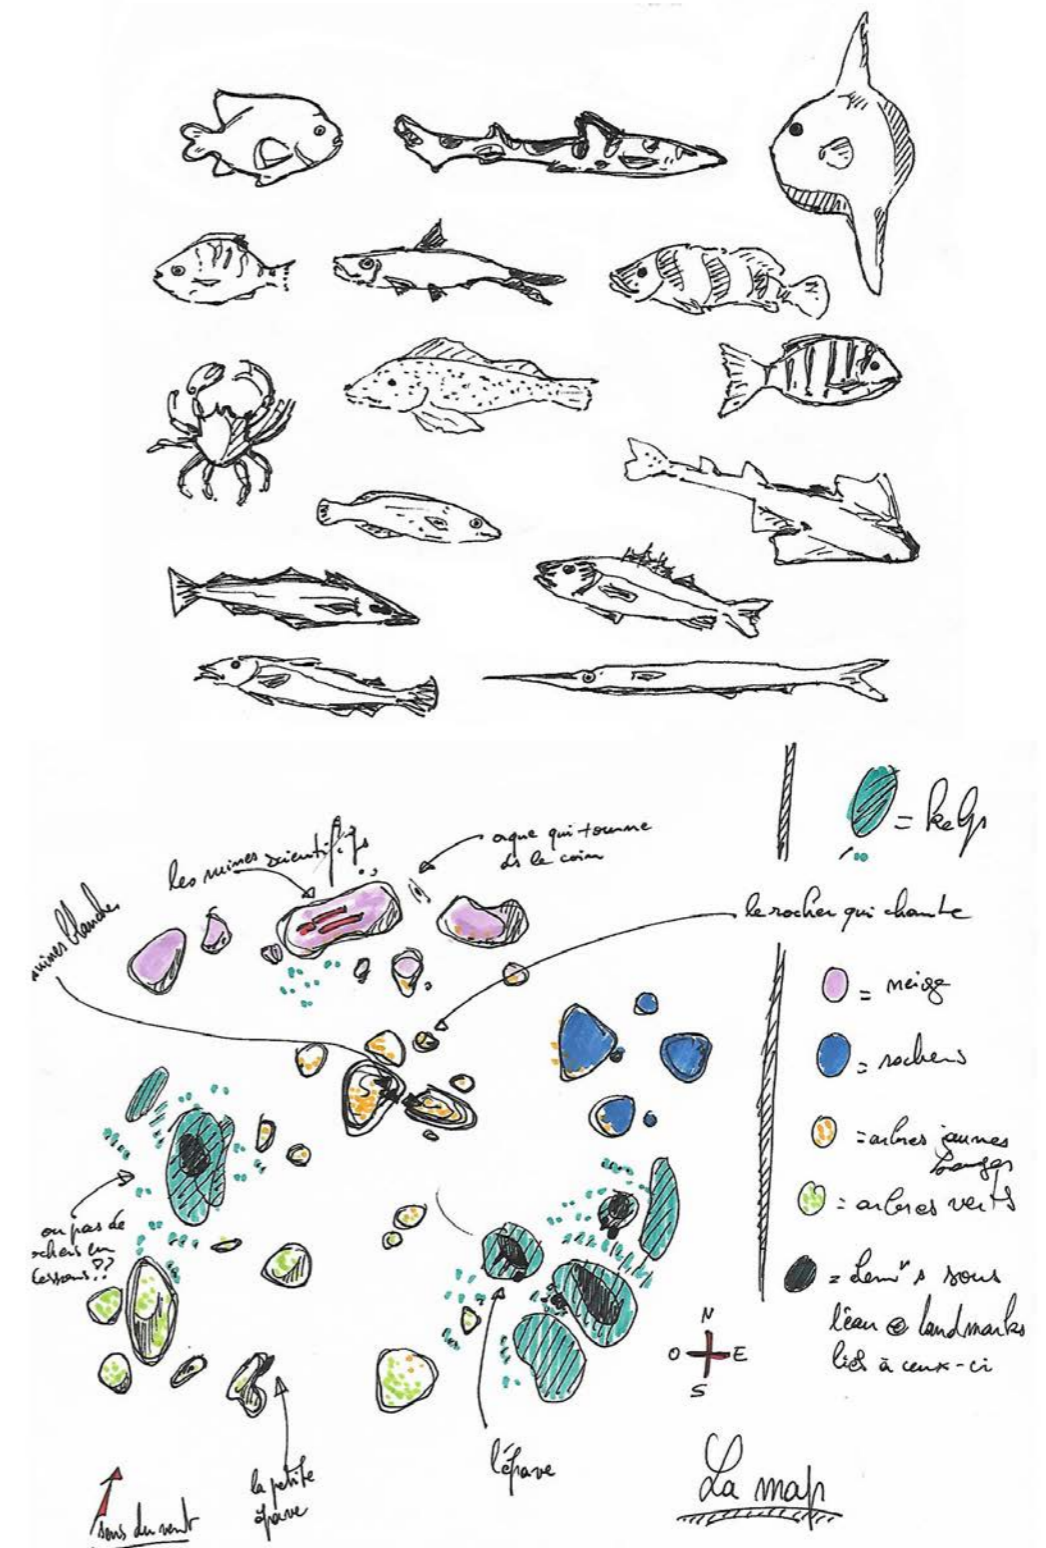 les ruines scientifiqs
orque qui tourne
ds le coin
ruines blanches
le rocher qui chante
= kelp
= neige
= rochers
= arbres jaunes
oranges
= arbres verts
= dem"s sous
l'eau @ landmarks
liés à ceux-ci
ou pas de
rochers en
dessous??
N
O
E
S
la petite
épave
l'épave
sens du vent
La map